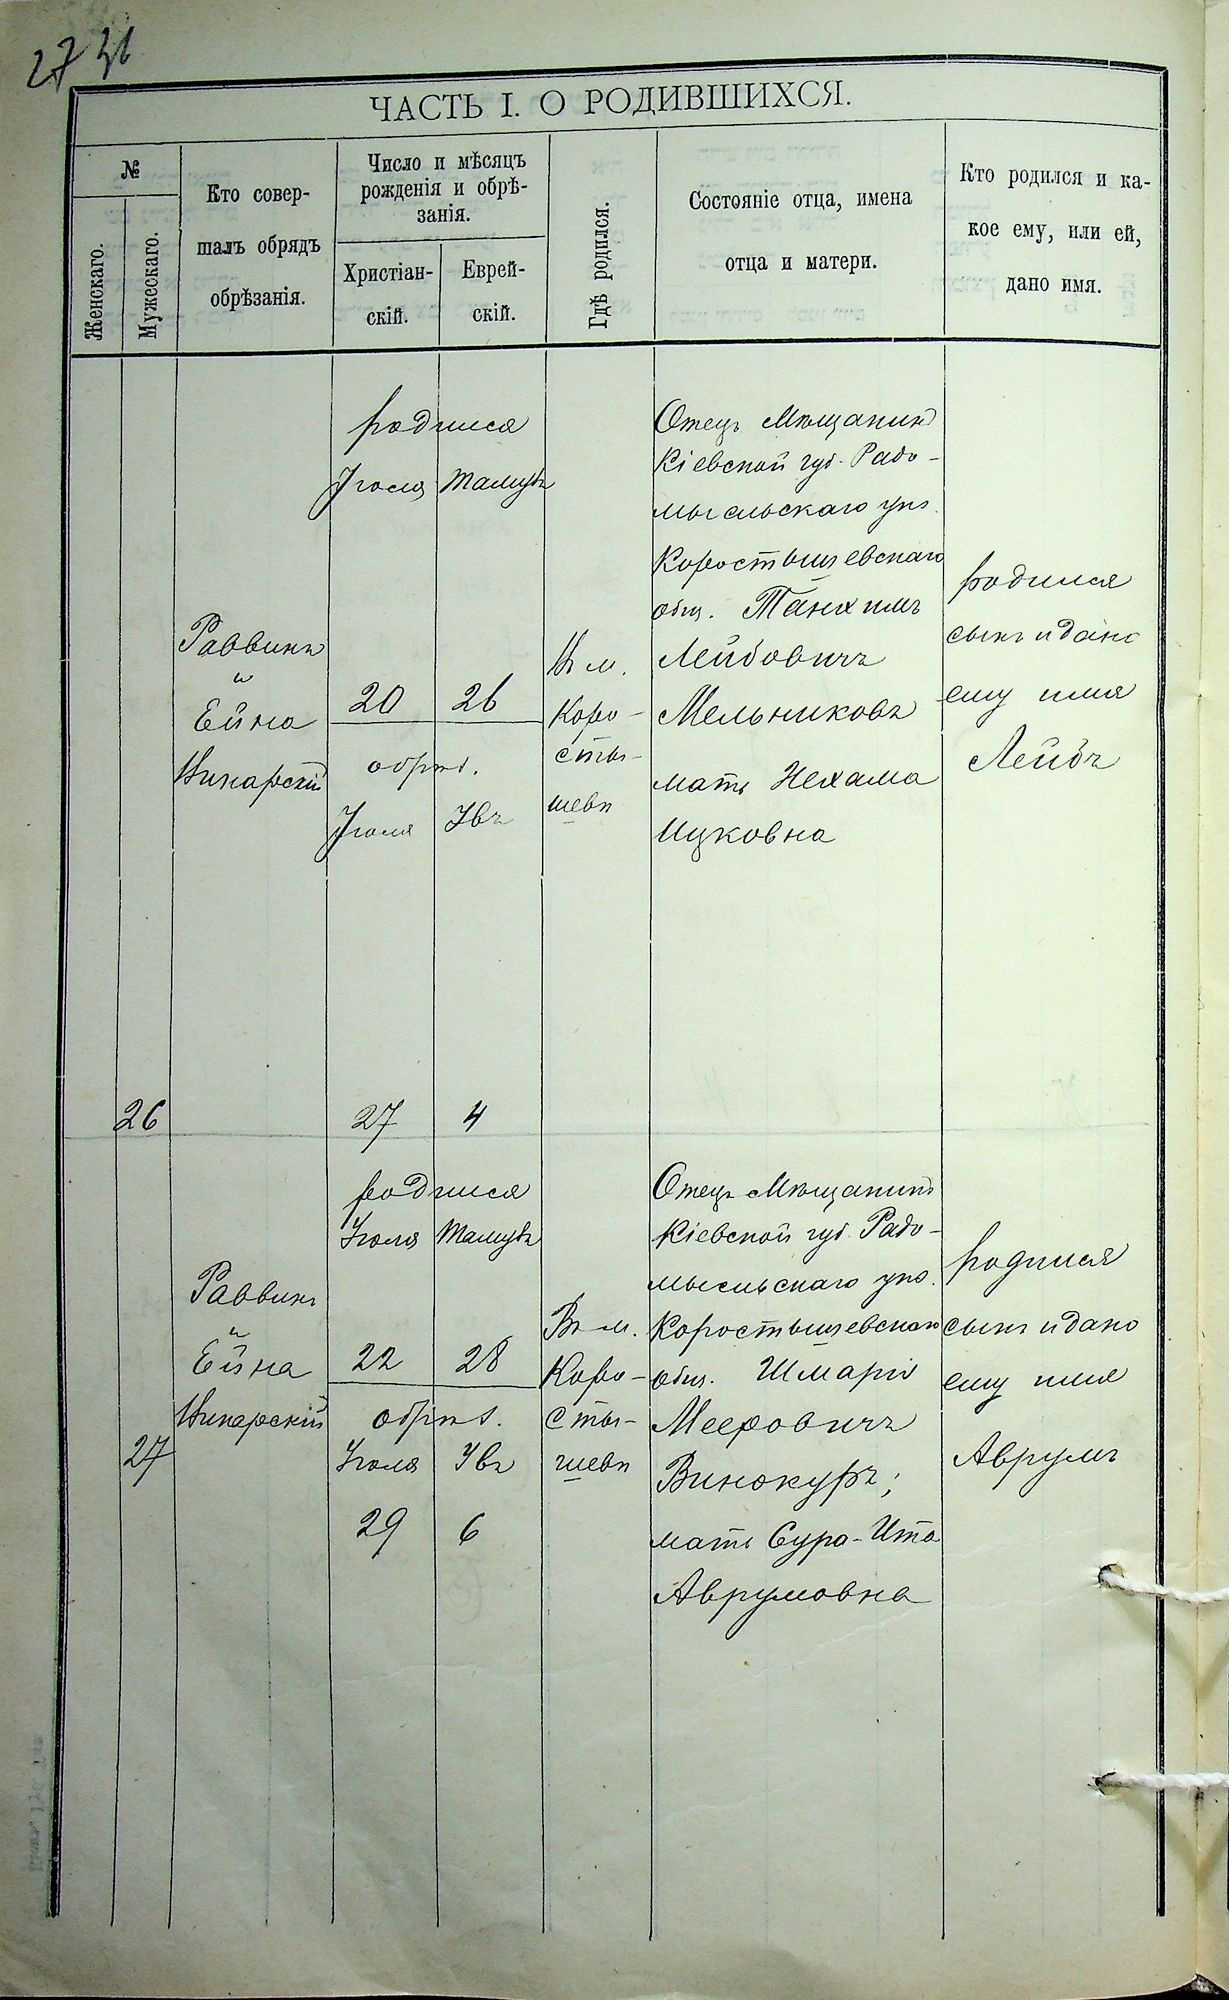 27
ЧАСТЬ I. О РОДИВШИХСЯ.
№
Женскаго.
Мужескаго.
Кто совер-
шалъ обрядъ
обрѣзанія.
Число и мѣсяцъ
рожденія и обрѣ-
занія.
Христіан-
скій.
Еврей-
скій.
Гдѣ родился.
Состояніе отца, имена
отца и матери.
Кто родился и ка-
кое ему, или ей,
дано имя.
26
Раввинъ
и
Ейна
родился
Іюля Тамузъ
20 26
обрѣз.
Іюля Овъ
27 4
Въ м.
Коро-
сты-
шевѣ
Отецъ Мѣщанинъ
Кіевской губ. Радо-
мысльскаго уѣз.
Коростышевскаго
общ. Танхимъ
Лейбовичъ
Мельниковъ
мать Нехама
Ицковна
родился
сынъ и дано
ему имя
Лейбъ
27
Раввинъ
и
Ейна
родился
Іюля Тамузъ
22 28
обрѣз.
Іюля Овъ
29 6
Въ м.
Коро-
сты-
шевѣ
Отецъ Мѣщанинъ
Кіевской губ. Радо-
мысльскаго уѣз.
Коростышевскаго
общ. Шмаріо
Мееровичъ
Винокуръ;
мать Сура-Ита
Аврумовна
родился
сынъ и дано
ему имя
Аврумъ